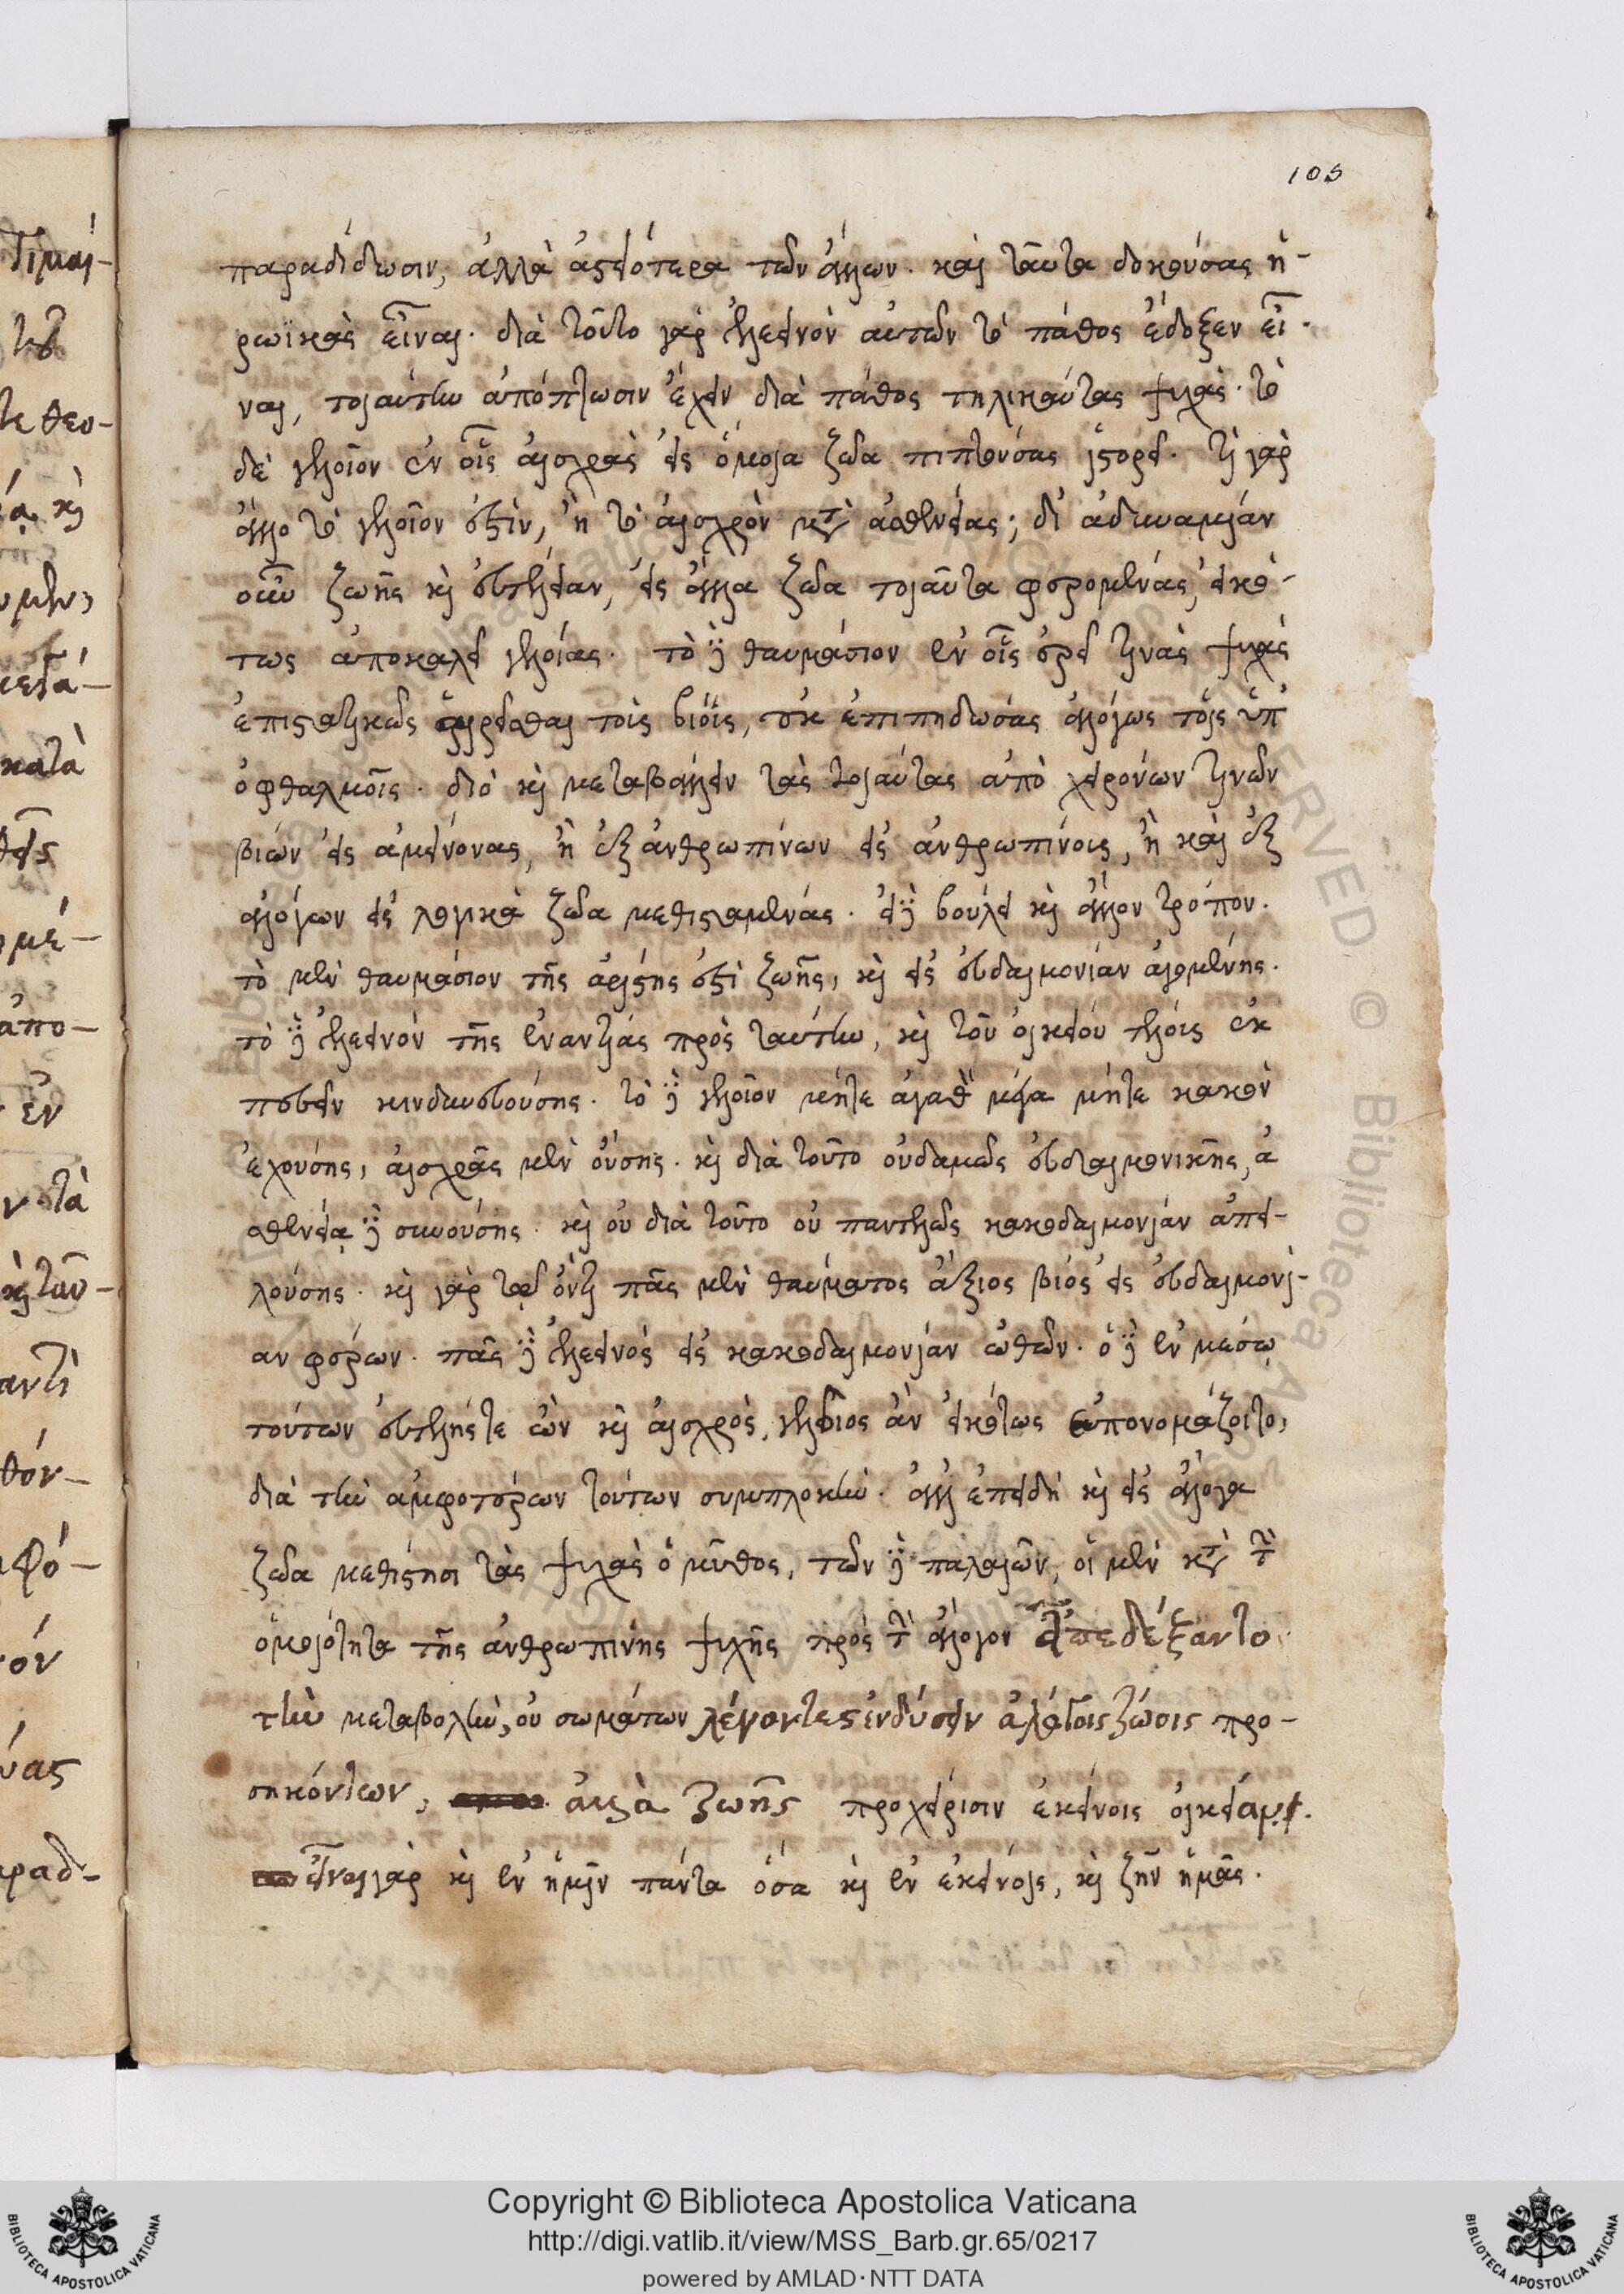 105
παραδίδωσιν, ἀλλὰ ἀστειότερα τῶν ἄλλων. καὶ ταῦτα δοκούσας ἡ-
ρωϊκὰς εἶναι. διὰ τοῦτο γὰρ ἐλεεινὸν αὐτῶν τὸ πάθος ἔδοξεν εἶ-
ναι, τοιαύτην ἀπόπτωσιν ἔχειν διὰ πάθος τηλικαύτας ψυχάς. τὸ
δὲ γελοῖον ἐν οἷς αἰσχρὰς εἰς ὅμοια ζῶα πιπτούσας ἱστορεῖ. τί γὰρ
ἄλλο τὸ γελοῖον ἐστὶν, ἢ τὸ αἰσχρὸν μετὰ ἀσθενείας; δι' ἀδυναμίαν
οὖν ζωῆς καὶ εὐτέλειαν, εἰς ἄλλα ζῶα τοιαῦτα φερομένας, εἰκό-
τως ἀποκαλεῖ γελοίας. τὸ δὲ θαυμάσιον ἐν οἷς ὁρᾷ τινὰς ψυχὰς
ἐπιστατικῶς αἱρεῖσθαι τοὺς βίους, οὐκ ἐπιπηδώσας ἀλόγως τοῖς ὑπ'
ὀφθαλμοῖς. διὸ καὶ μεταβάλλειν τὰς τοιαύτας ἀπὸ χειρόνων τινῶν
βίων εἰς ἀμείνονας, ἢ ἐξ ἀνθρωπίνων εἰς ἀνθρωπίνους, ἢ καὶ ἐξ
ἀλόγων εἰς λογικὰ ζῶα μεθισταμένας. εἰ δὲ βούλει καὶ ἄλλον τρόπον.
τὸ μὲν θαυμάσιον τῆς ἀρίστης ἐστὶ ζωῆς, καὶ εἰς εὐδαιμονίαν ἀγομένης.
τὸ δὲ ἐλεεινὸν τῆς ἐναντίας πρὸς ταύτην, καὶ τοῦ οἰκείου τέλους ἐκ
πεσεῖν κινδυνευούσης. τὸ δὲ γελοῖον μήτε ἀγαθὸν μέγα μήτε κακὸν
ἐχούσης, αἰσχρᾶς μὲν οὔσης. καὶ διὰ τοῦτο οὐδαμῶς εὐδαιμονικῆς, ἀ
σθενείᾳ δὲ συνούσης. καὶ οὐ διὰ τοῦτο οὐ παντελῶς κακοδαιμονίαν ἀπει-
λούσης. καὶ γὰρ τῷ ὄντι πᾶς μὲν θαύματος ἄξιος βίος εἰς εὐδαιμονί-
αν φέρων. πᾶς δὲ ἐλεεινὸς εἰς κακοδαιμονίαν ὠθῶν. ὁ δὲ ἐν μέσῳ
τούτων εὐτελής τε ὢν καὶ αἰσχρὸς, γελοῖος ἂν εἰκότως ἐπονομάζοιτο,
διὰ τὴν ἀμφοτέρων τούτων συμπλοκὴν. ἀλλ' ἐπειδὴ καὶ εἰς ἄλογα
ζῶα μεθίστησι τὰς ψυχὰς ὁ μῦθος, τῶν δὲ παλαιῶν, οἱ μὲν κατὰ τὴν
ὁμοιότητα τῆς ἀνθρωπίνης ψυχῆς πρὸς τὴν ἄλογον ἀπεδέξαντο
τὴν μεταβολὴν, οὐ σωμάτων λέγοντες ἐνδύσειν ἀλόγοις ζώοις προ-
σηκόντων, ἀλλὰ ζωῆς προχείρισιν ἐκείνοις οἰκείαν.
εἶναι γὰρ καὶ ἐν ἡμῖν πάντα ὅσα καὶ ἐν ἐκείνοις, καὶ ζῆν ἡμᾶς.
Copyright © Biblioteca Apostolica Vaticana
http://digi.vatlib.it/view/MSS_Barb.gr.65/0217
powered by AMLAD·NTT DATA
BIBLIOTECA APOSTOLICA VATICANA
BIBLIOTECA APOSTOLICA VATICANA